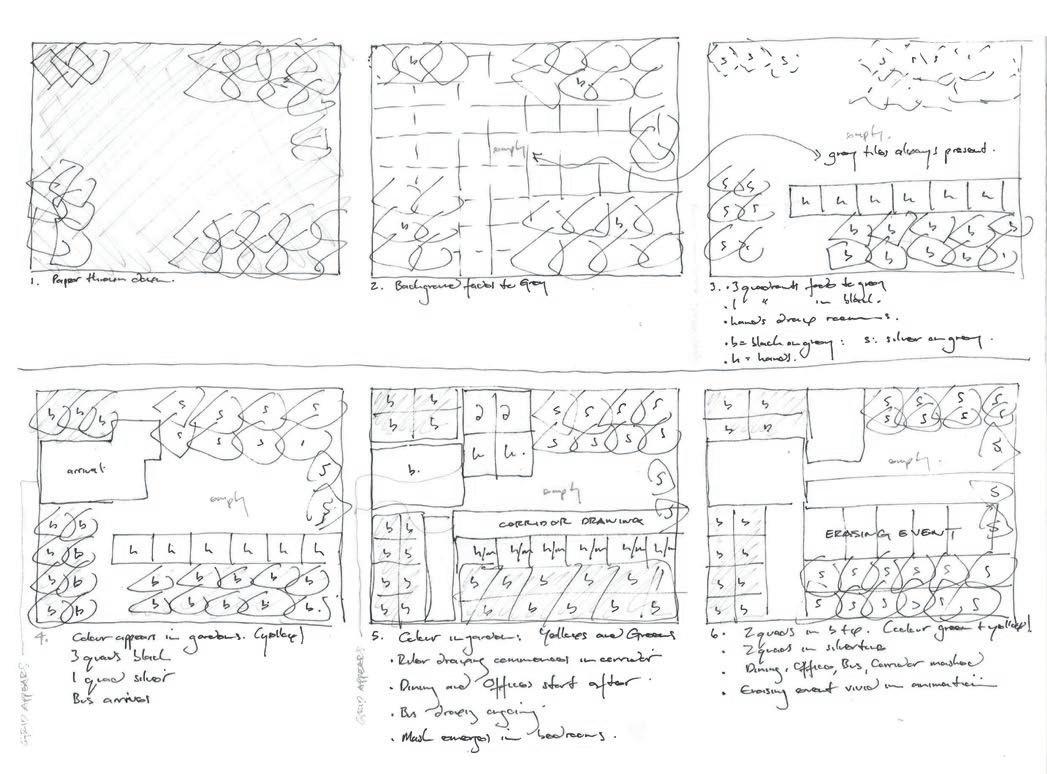 b
b
empty
b
b
1. Paper thrown down.
2. Background fades to Grey
S S S
S S S
empty.
grey tiles always present.
S S
S S
S
h h h h h h
b b b b b
b b b b
3. • 3 quadrants fade to grey
• 1 " in black.
• hands drawing
• b = black on grey : S : silver on grey.
• h = hands.
b b b
S S S S
S S
arrival
S
empty
b b
b b
b b
b b
h h h h h h
b b b b b
b b b b b
4. Colour appears in gardens. (yellow)
3 quads black
1 quad silver
Bus arrival
GRID APPEARS
b b
b b
b.
2 2
h h.
S S S S
S S S S
S
empty
S
CORRIDOR DRAWING
h/m h/m h/m h/m h/m h/m
b b
b b
b b
b b
b b b b b
b b b b b
5. Colour in garden: Yellows and Greens
• Ruler drawing commences in corridor
• Dining and Offices start after.
• Bus drawing ongoing.
• Mask emerges in bedrooms.
GRID APPEARS
b b
b b
S S S S
S S S S
S
empty.
S
S
ERASING EVENT
b b
b b
b b
b b
S S S S S
S S S S S
6. • 2 quads in b + up. (colour green + yellow)
• 2 quads in silver
• Dining, Offices, Bus, Corridor masked
• Erasing event vivid in animation